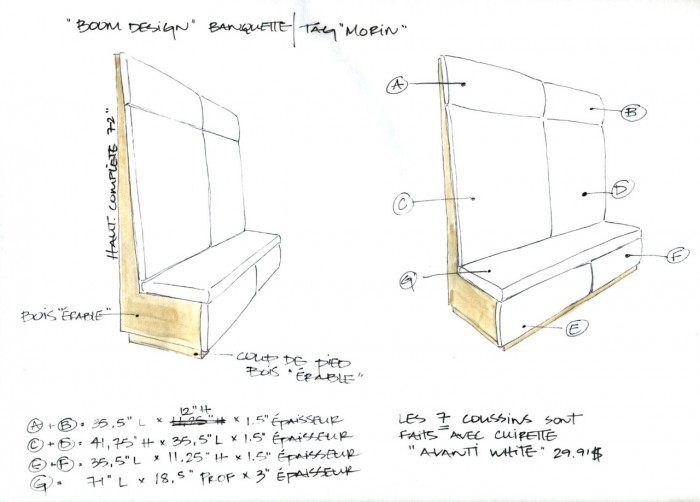 "BOOM DESIGN" BANQUETTE / TAG "MORIN"
HAUT. COMPLÈTE 72"
BOIS "ÉRABLE"
COUP DE PIED
BOIS "ÉRABLE"
A
B
C
D
G
F
E
12" H
A + B = 35,5" L × 11,25" H × 1.5" ÉPAISSEUR
C + D = 41,75" H × 35,5" L × 1.5" ÉPAISSEUR
E + F = 35,5" L × 11,25" H × 1.5" ÉPAISSEUR
G = 71" L × 18,5" PROF × 3" ÉPAISSEUR
LES 7 COUSSINS SONT
FAITS AVEC CUIRETTE
"AVANTI WHITE" 29.91$